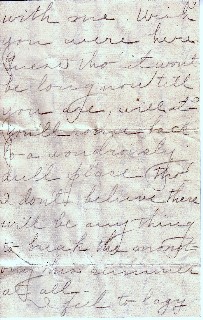 with me. Wish
you were here
know tho' it wont
be long now till
you are, will it?
You'll come back
to a wondrously
dull place tho'
I don't believe there
will be any thing
to break the monot-
ony this summer
at all.
I feel to lazy